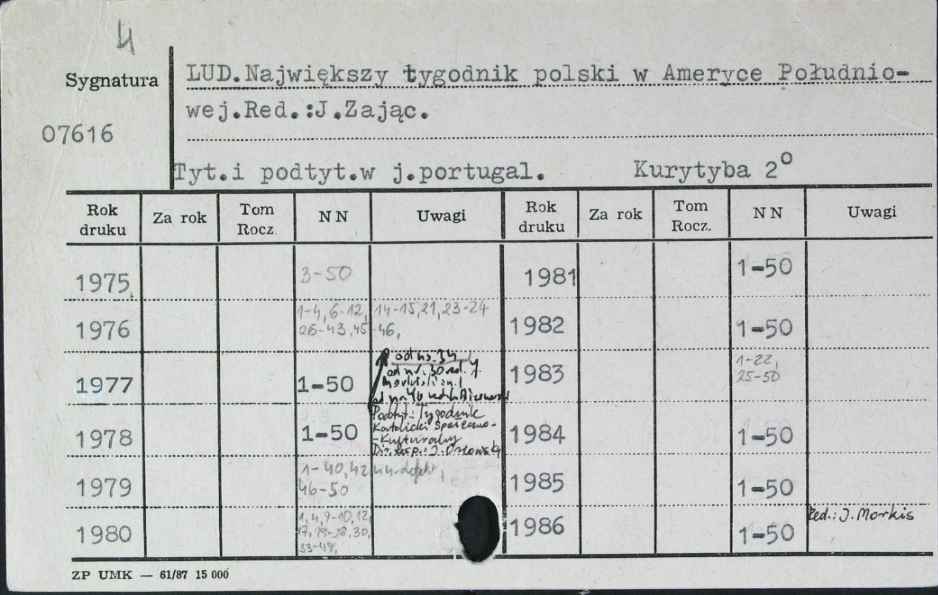 4
Sygnatura
07616
LUD.Największy tygodnik polski w Ameryce Południo-
wej.Red.:J.Zając.
Tyt.i podtyt.w j.portugal. Kurytyba 2°
Rok druku Za rok Tom Rocz. NN Uwagi Rok druku Za rok Tom Rocz. NN Uwagi
1975 3-50 1981 1-50
1976 1-4, 6-12, 14-15, 21, 23-24
26-43, 45-46, 1982 1-50
1977 1-50 od nr. 34
od nr. 30 red. J.
1983 1-22,
25-50
1978 1-50 Podtyt.: Tygodnik
Katolicki Społeczno-
-Kulturalny
1984 1-50
1979 1-40, 42
46-50 1985 1-50
1980 1, 4, 9-10, 12,
1986 1-50 Red.: J. Morkis
ZP UMK — 61/87 15 000